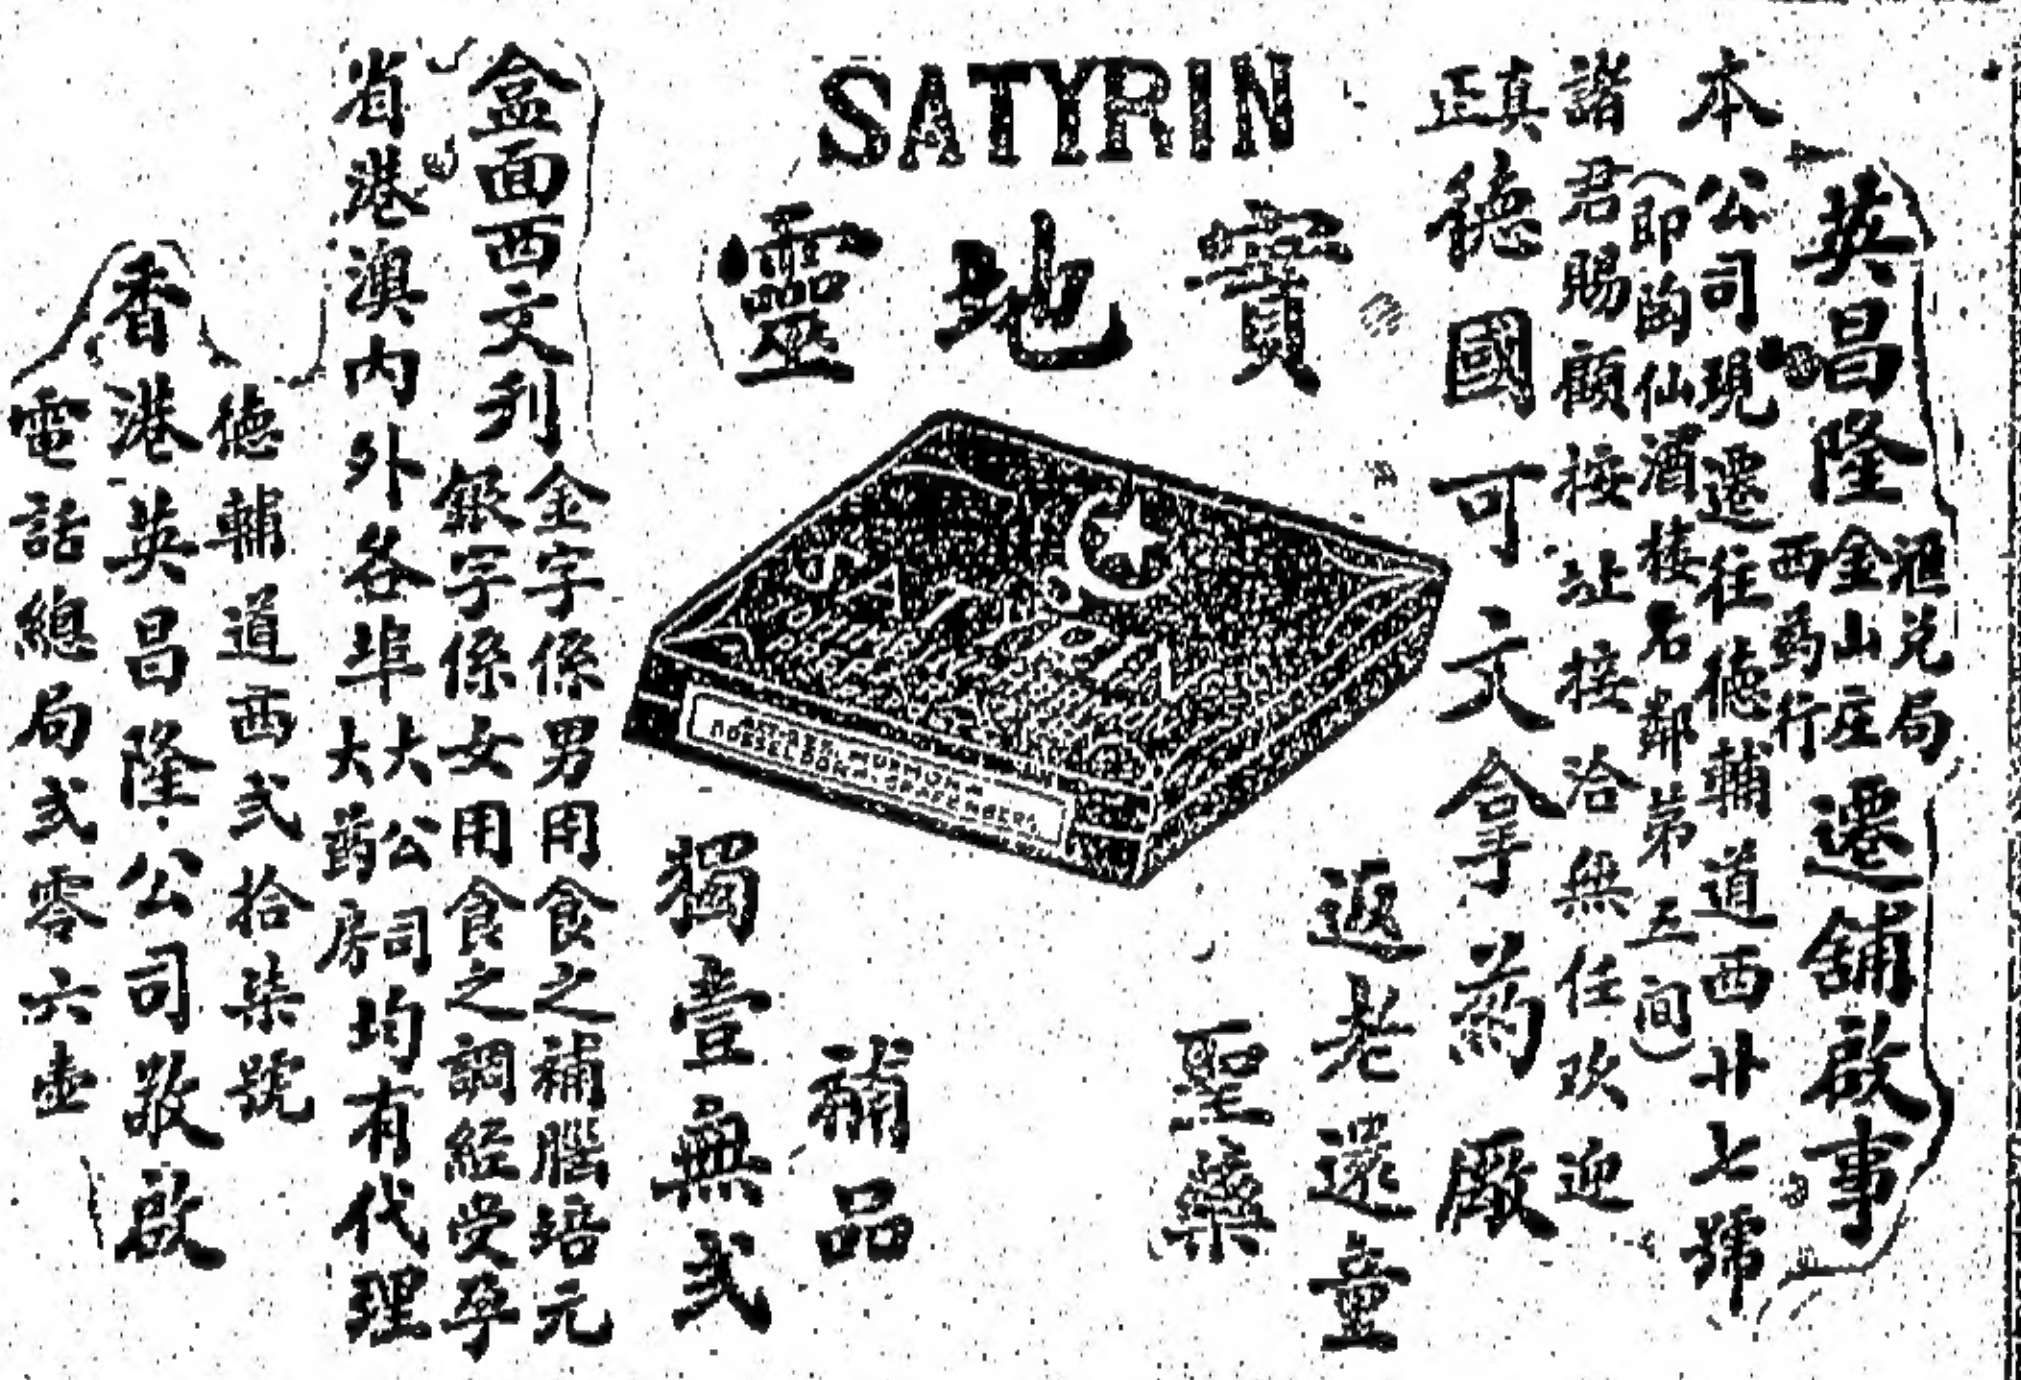 英昌隆
滙兌局
金山庄
西葯行
遷舖啟事
本公司現遷往德輔道西廿七號
(即陶仙酒楼右鄰第五間)
諸君賜顧按址接洽無任欢迎
真正德國可文拿葯廠
SATYRIN
寶地靈
SATYRIN
返老還童
聖藥
補品
獨壹無弍
盒面西文列
金字係男用食之補腦培元
銀字係女用食之調経受孕
省港澳內外各埠
大公司
大葯房
均有代理
德輔道西弍拾柒號
香港英昌隆公司敬啟
電話總局弍零六壶